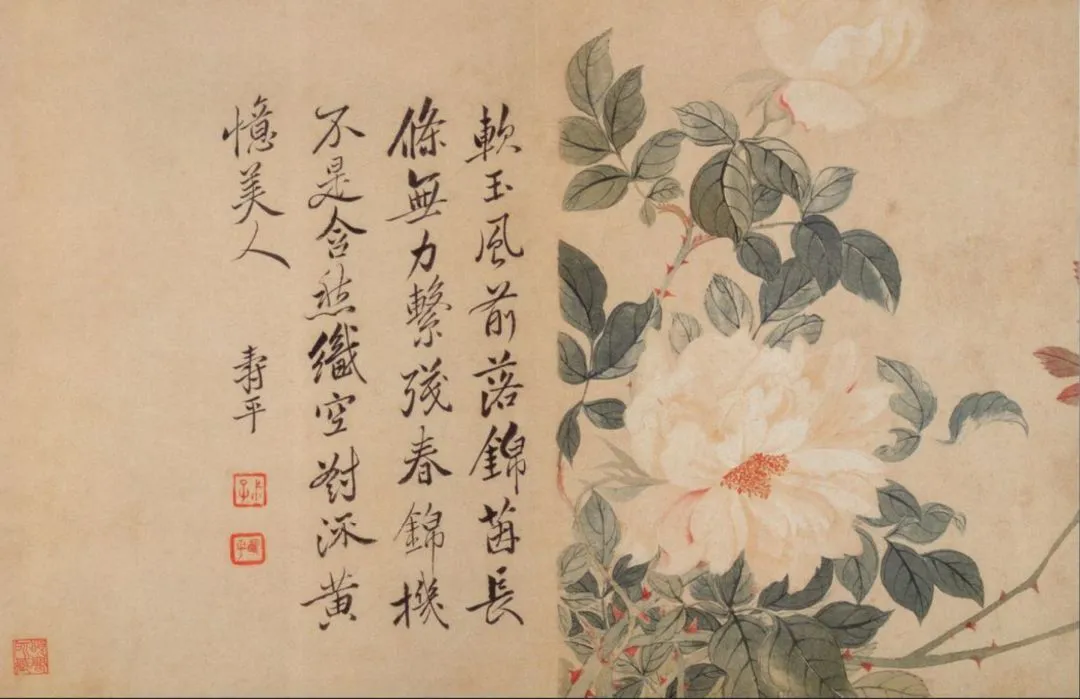 軟玉風前落錦茵長
條無力繫殘春錦機
不是含愁織空對流黃
憶美人
壽平